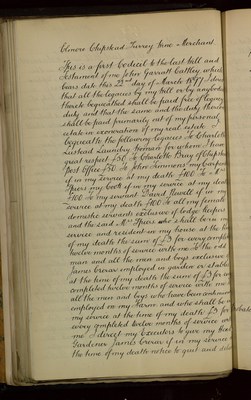 Elmers Chipstead Surrey Wine Merchant
This is a first Codicil to the last Will and
testament of me John Garratt Cattley which
bears date this 22nd day of March 1897 I
that all the legacies by my Will or by any
thereto bequeathed shall be paid free of legacy
duty and that the same and the duty thereon
shall be paid primarily out of my personal
estate in exoneration of my real estate I
bequeath the following legacies To Charlotte
laundry woman for whom I have
great respect £50 To Charlotte Bray Chipstead
Post Office £50 To John Simmons my
if in my service at my death £100 To Mrs
Spiers my Cook if in my service at my death
£100 To my servant David Howell if in my
service at my death £100 To all my female
domestic servants exclusive of lodge keepers
and the said Mrs Spiers who shall be in my
service and resident in my house at the time
of my death the sum of £5 for every completed
twelve months of service with me To the
man and all the men and boys exclusive of
James Brown employed in garden or stables
at the time of my death the sum of £5 for
completed twelve months of service with me
all the men and boys who have been and
employed on my Farm and who shall be in
my service at the time of my death £3 for
every completed twelve months of service with
me I direct my Executors to give my Head
Gardener James Brown if in my service at
the time of my death notice to quit and